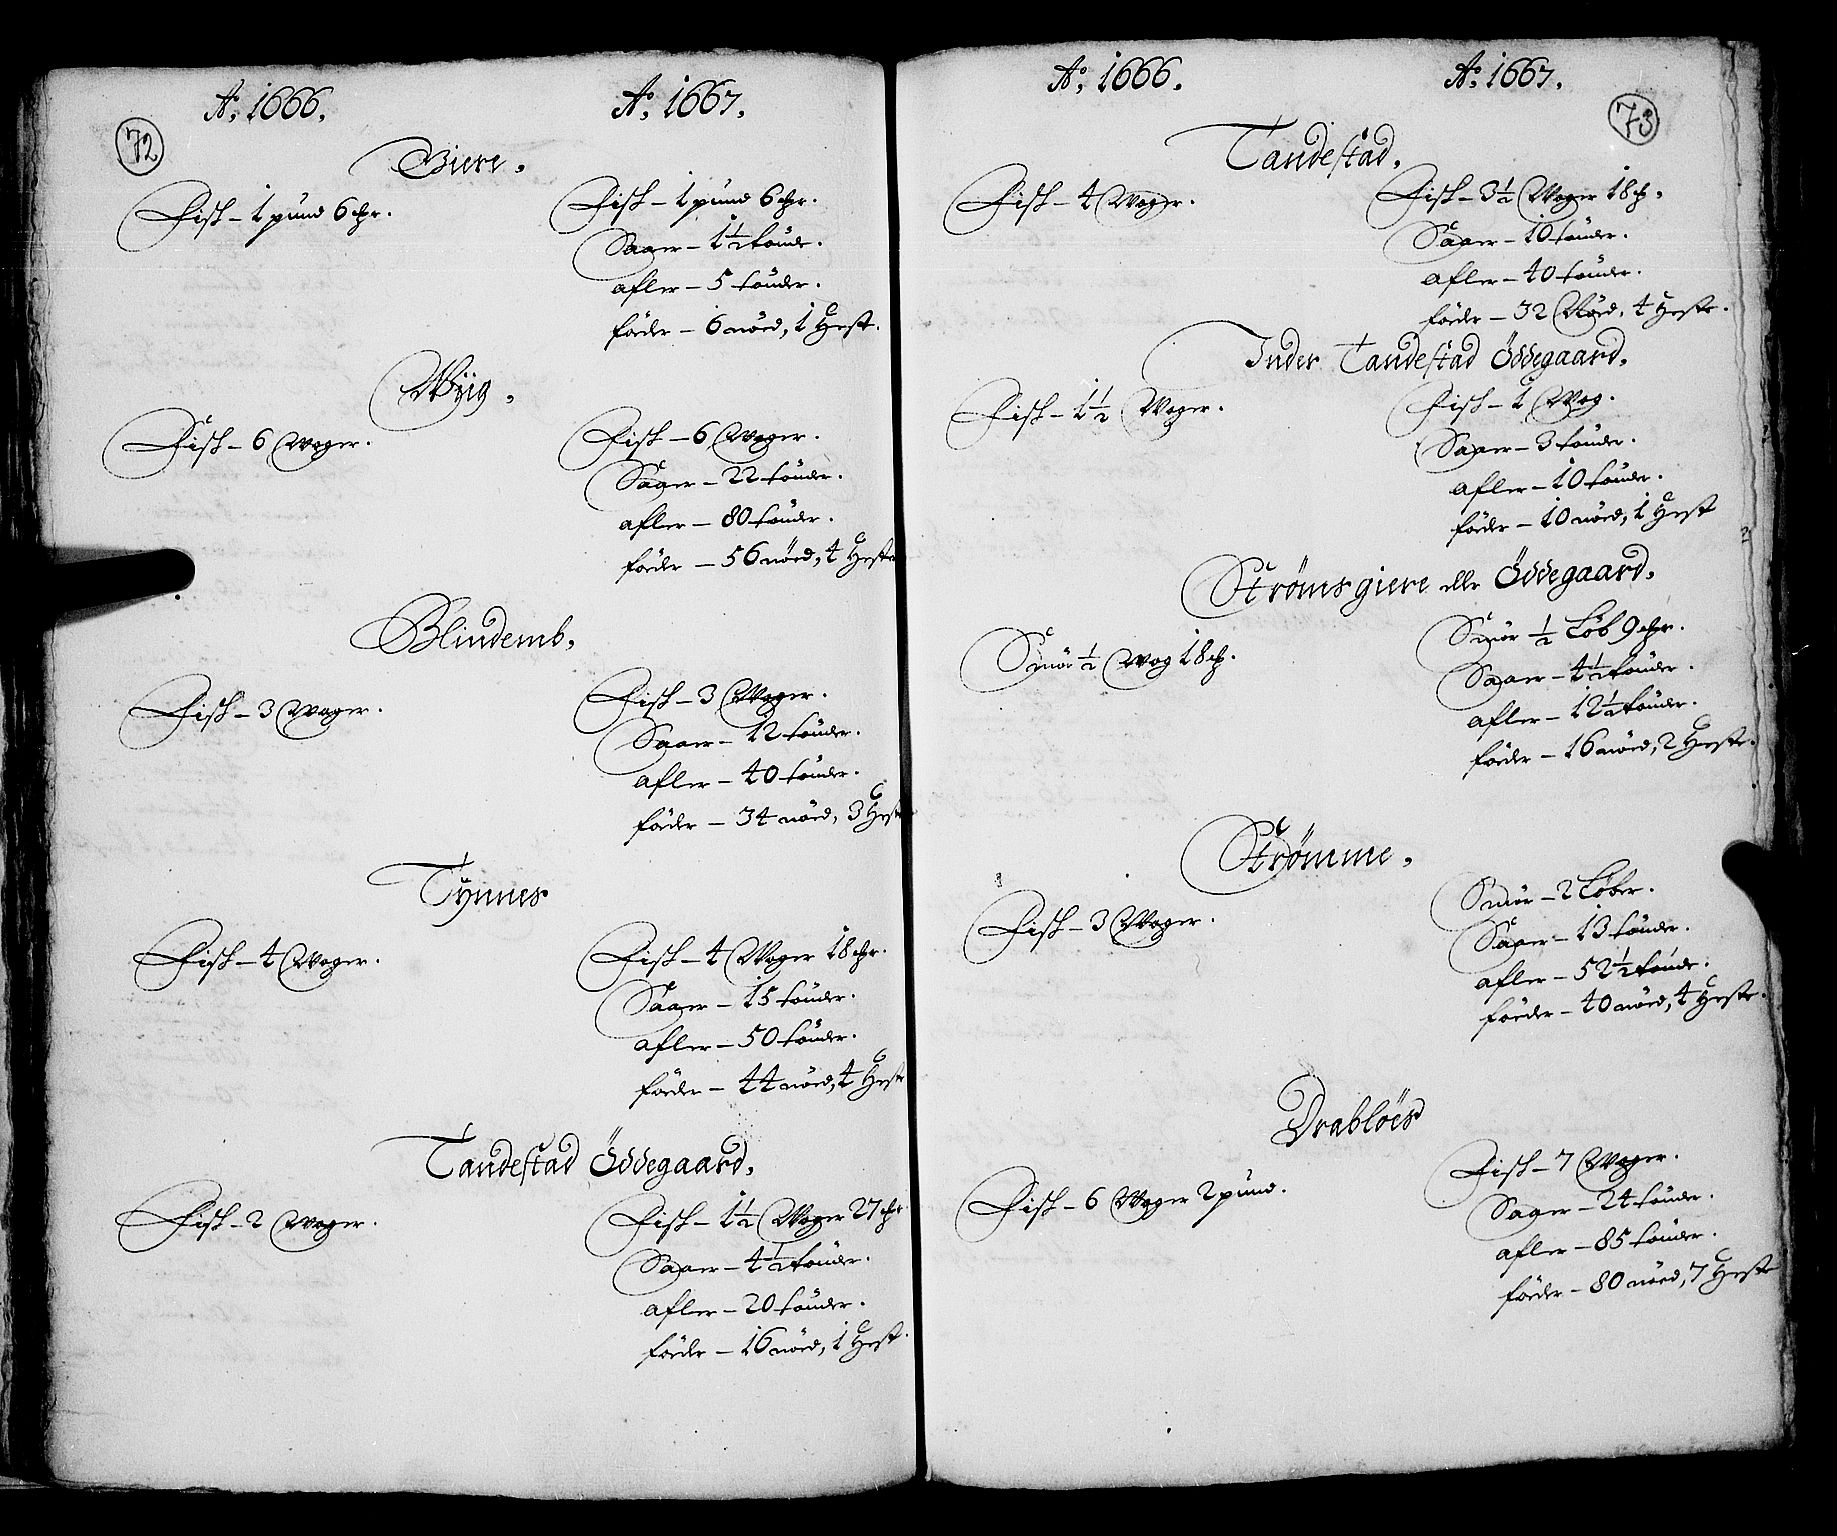 72
Ao. 1666. Ao. 1667.
Giere.
Fisk – 1 pund 6 chr.
Fisk – 1 pund 6 chr.
Saaer – 1½ tønde.
afler – 5 tønder.
føder – 6 nöed, 1 Hest.
Wÿig.
Fisk – 6 Woger.
Fisk – 6 Woger.
Saaer – 22 tønder.
afler – 80 tønder.
føder – 56 nöed, 4 Heste
Blindemb.
Fisk – 3 Woger.
Fisk – 3 Woger.
Saaer – 12 tønder.
afler – 40 tønder.
føder – 34 nöed, 3 Heste
Tÿnnes
Fisk – 4 Woger.
Fisk – 4 Woger 18 chr.
Saaer – 15 tønder.
afler – 50 tønder.
føder – 44 nöed, 4 Heste
Tandestad Öddegaard.
Fisk – 2 Woger.
Fisk – 1½ Woger 27 chr
Saaer – 4½ tønder.
afler – 20 tønder.
føder – 16 nöed, 1 Hest.
73
Ao. 1666. Ao. 1667.
Tandestad.
Fisk – 4 Woger.
Fisk – 3½ Woger 18 ch.
Saaer – 10 tønder.
afler – 40 tønder.
føder – 32 Nöed, 4 Heste.
Inder Tandestad Öddegaard.
Fisk – 1½ Woger.
Fisk – 1 Wog.
Saaer – 3 tønder.
afler – 10 tønder.
føder – 10 nöed, 1 Hest
Strømsgiere eller Öddegaard.
Smör ½ Wog 18 ch.
Smör ½ Løb 9 chr.
Saaer – 4½ tønder.
afler – 12½ tønder.
føder – 16 nöed, 2 Heste.
Strømme.
Fisk – 3 Woger.
Smör – 2 Løber.
Saaer – 13 tønder.
afler – 52½ tønde.
føder – 40 nöed, 4 Heste.
Drabløes
Fisk – 6 Woger 2 pund.
Fisk – 7 Woger.
Saaer – 24 tønder.
afler – 85 tønder.
føder – 80 nöed, 7 Heste